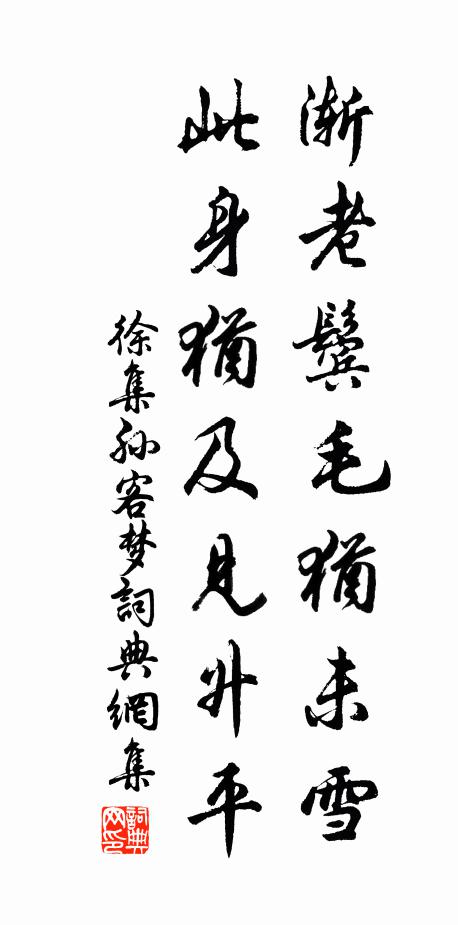 漸老鬓毛猶未雪
此身猶及見升平
徐集孙客梦詞典網集
詞典
网印